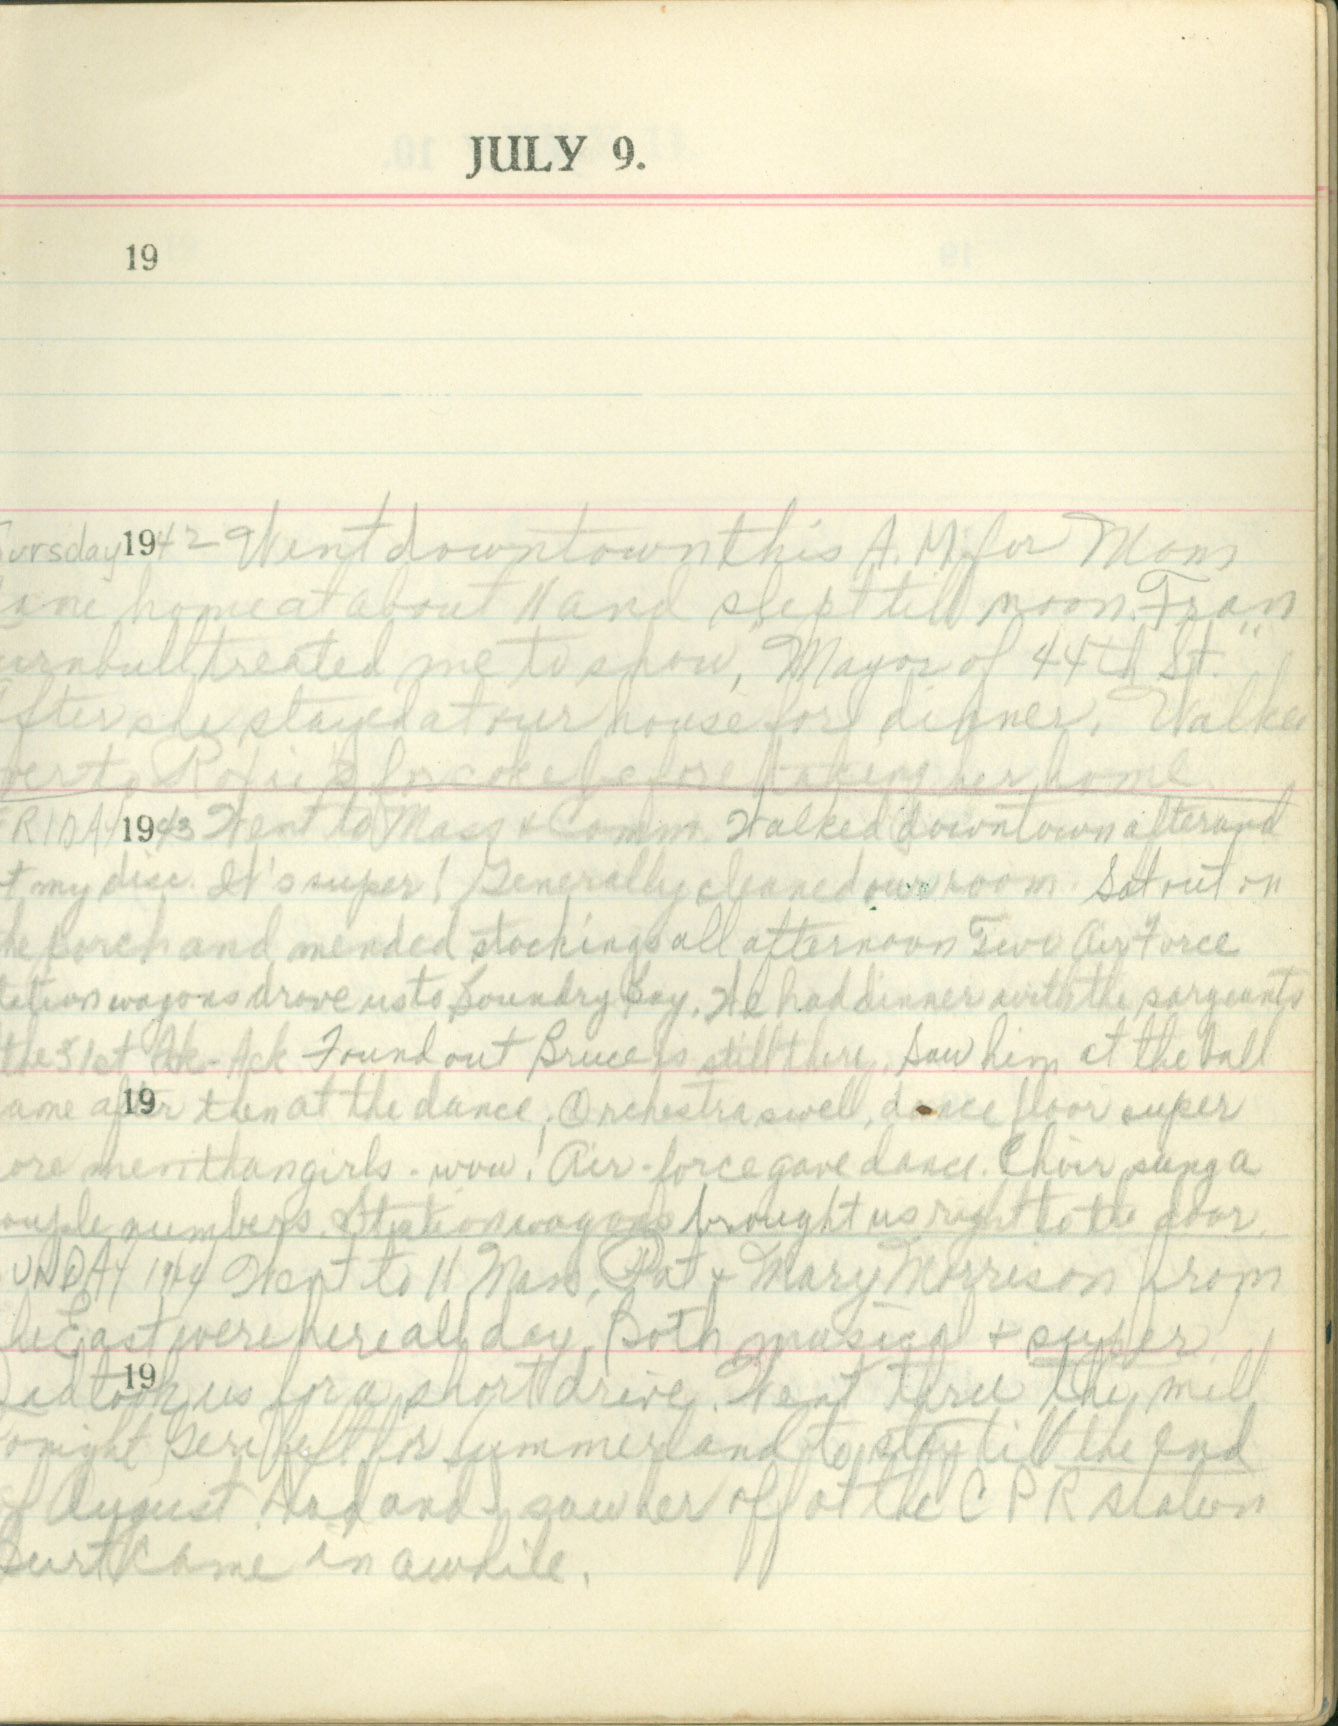 JULY 9.
19
ursday 1942 Went downtown this A.M. for Mom
ame home at about 11 and slept till noon. Fran
urnbull treated me to show, "Mayor of 44th St."
After she stayed at our house for dinner. Walke
over to for coke before taking her home
FRIDAY 1943 Went to Mass & Comm. Walked downtown after and
t my disc. It's super! Generally cleaned our room. Sat out on
the porch and mended stockings all afternoon Two Air Force
tation wagons drove us to Boundry Bay. We had dinner with the sargeants
the 31st Ak-Ack Found out Bruce is still there. Saw him at the ball
19
ame after then at the dance. Orchestra swell, dance floor super
ore men than girls - wow! Air-force gave dance. Choir sang a
ouple numbers. Station wagons brought us right to the door.
UNDAY 1944 Went to 11 Mass. Pat & Mary Morrison from
he East were here all day. Both musical & super.
19
Dad took us for a short drive. Went thru the mill
onight Geri left for Summerland to stay till the end
of August. Dad and I saw her off at the C P R station
Burt came in awhile.